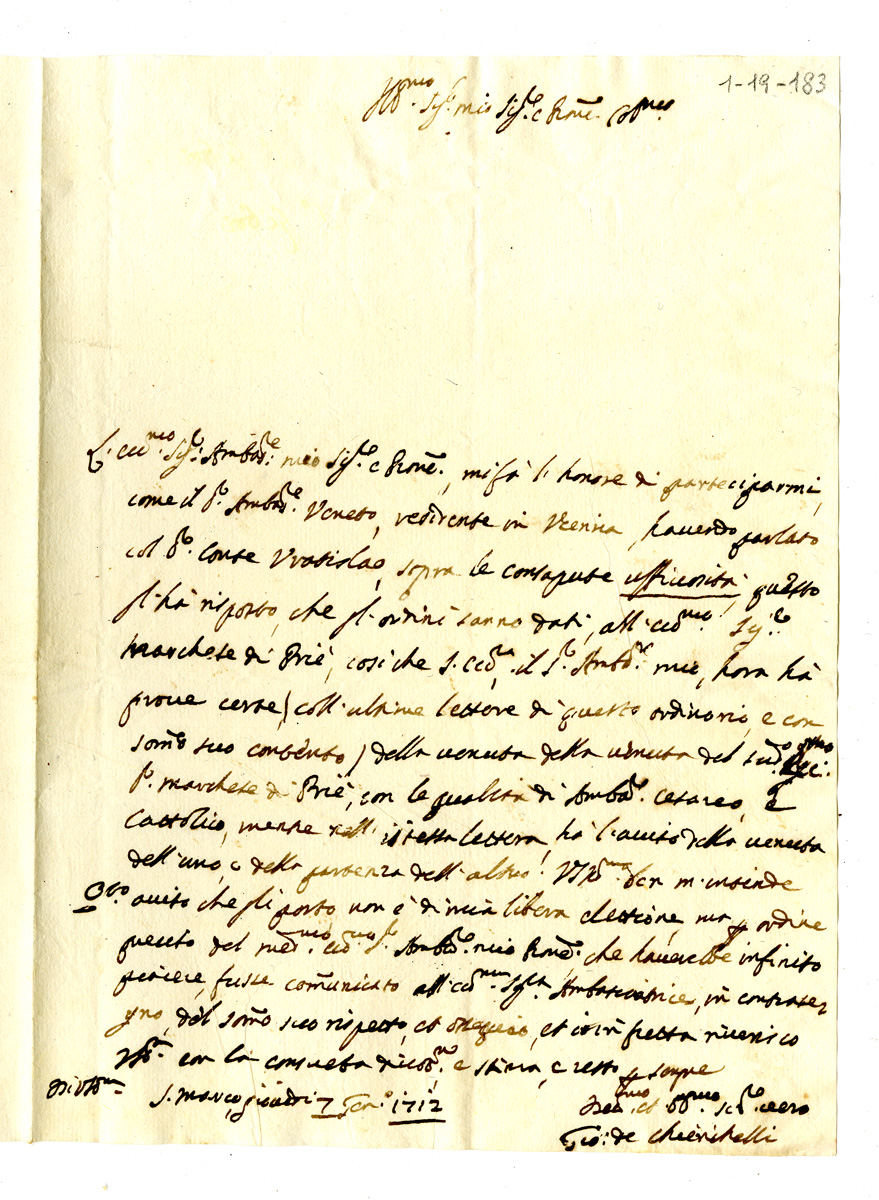 1-19-183
Ill:mo Sig:r mio Sig:re e Prone: Oss:mo
L'ecc:mo Sig:r Ambas:re mio Sig:re e Prone:, mi fà l'honore di parteciparmi,
come il S:r Ambas:re Veneto, residente in Vienna, havendo parlato
col S:r Conte Vratislao, sopra le consapute officiosità, questo
gl'hà risposto, che gl'ordini sanno dati, all'ecc:mo Sig:re
Marchese di Priè, così che S. Ecc:a, il S:r Ambas:r mio, hora hà
prove certe, (coll'ultime lettere di questo ordinario, e con
som̃o suo contento) della venuta della venuta del
S:r Marchese di Priè, con le qualità di Ambas:r Cesareo, e
Cattolico, mentre nell'istessa lettera, hà l'aviso della venuta
dell'uno, e della partenza dell'altro! VS Ill:ma ben m'intende
aviso che gli porto non è di mia libera elettione, ma p ordine
del med:mo ecc:mo S:r Ambas:r mio Prone:, che haverebbe infinito
piacere, fusse com̃unicato all'ecc:ma Sig:ra Ambasciatrice, in contrase,
gno, del som̃o suo rispetto, et ossequio, et io in fretta riverisco
VS Ill:ma con la consueta divot:ne, e stima, e resto p sempre
Di VS Ill:ma S. Marco, giovedì 7 Gen:o 1712
Dev:mo et obb:mo Ser:re vero
Gio: de Chierichelli